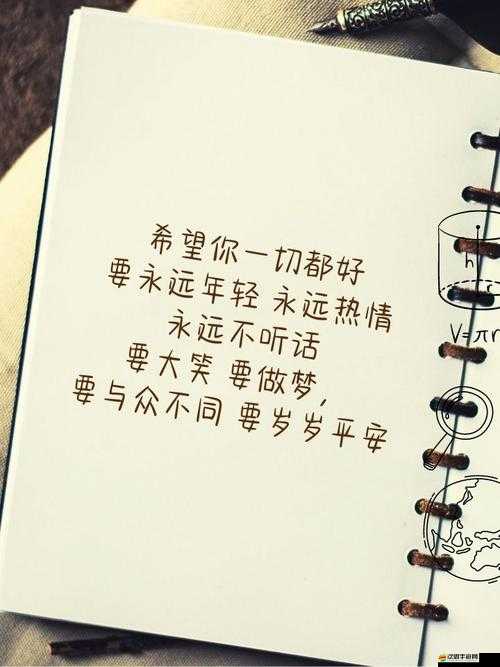 希望你一切都好
要永远年轻 永远热情
永远不听话
要大笑 要做梦,
要与众不同 要岁岁平安
h
V=πr